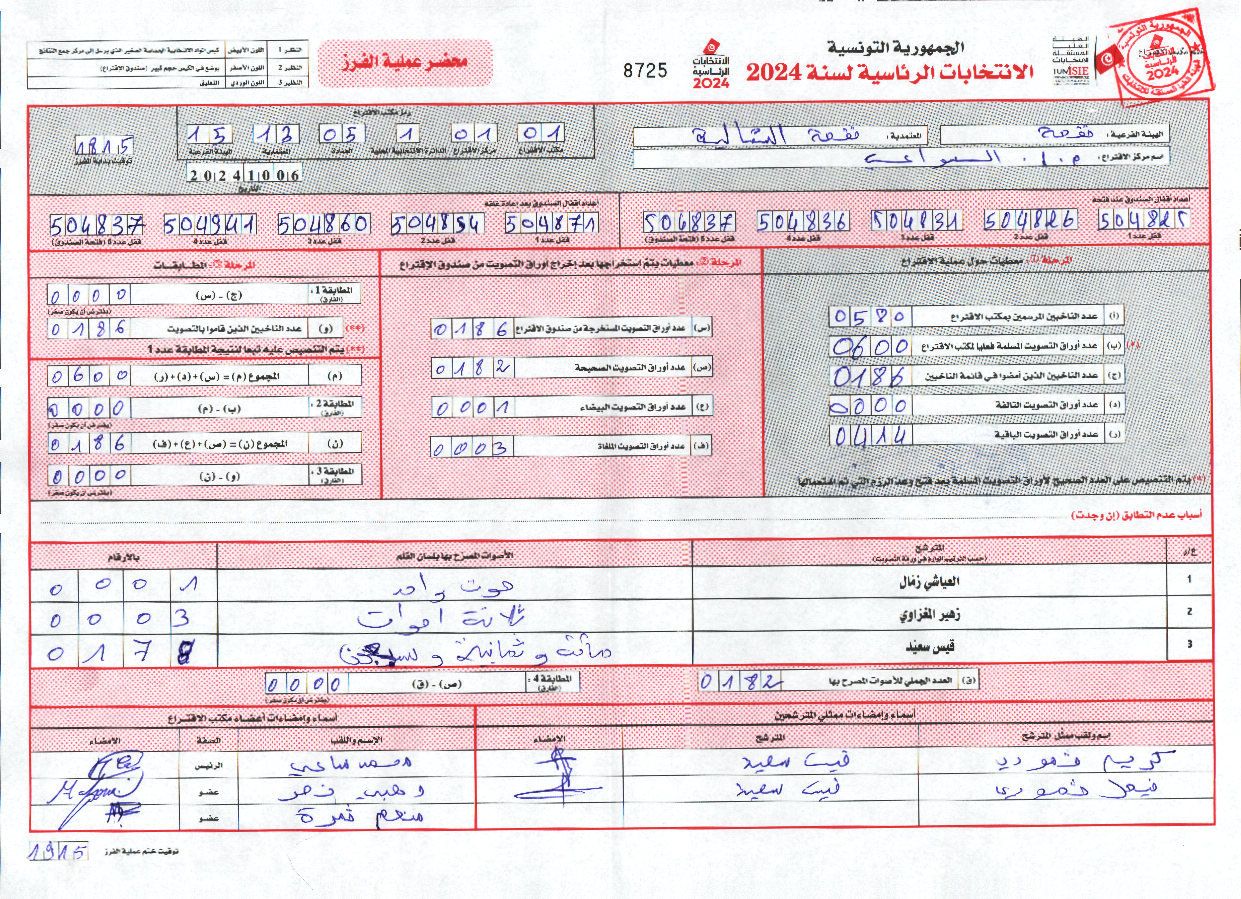 الجمهورية التونسية
الانتخابات الرئاسية لسنة 2024
الانتخابات الرئاسية 2024
8725
محضر عملية الفرز
النظير 1 اللون الأبيض كيس المواد الانتخابية الحساسة الصغير الذي يرسل إلى مركز جمع النتائج
النظير 2 اللون الأصفر يوضع في الكيس حجم كبير (صندوق الاقتراع)
النظير 3 اللون الوردي التعليق
الهيئة الفرعية : قفصة
المعتمدية : قفصة الشمالية
اسم مركز الاقتراع :
رمز مكتب الاقتراع
01 01 1 05 13 15
مكتب الاقتراع مركز الاقتراع الدائرة الانتخابية المحلية العمادة المعتمدية الهيئة الفرعية
1815
توقيت بداية الفرز
20241006
التاريخ
أعداد أقفال الصندوق عند فتحه
504825 504826 504831 504836 504837
قفل عدد 1 قفل عدد 2 قفل عدد 3 قفل عدد 4 قفل عدد 5 (فتحة الصندوق)
أعداد أقفال الصندوق بعد إعادة غلقه
504871 504854 504860 504941 504837
قفل عدد 1 قفل عدد 2 قفل عدد 3 قفل عدد 4 قفل عدد 5 (فتحة الصندوق)
المرحلة ①: معطيات حول عملية الاقتراع
(أ) عدد الناخبين المرسمين بمكتب الاقتراع 0580
(*) (ب) عدد أوراق التصويت المسلمة فعليا لمكتب الاقتراع 0600
(ج) عدد الناخبين الذين أمضوا في قائمة الناخبين 0186
(د) عدد أوراق التصويت التالفة 0000
(ر) عدد أوراق التصويت الباقية 0414
(*) يتم التنصيص على العدد الصحيح لأوراق التصويت المسلمة بعد فتح وعد الرزم التي تم استعمالها
المرحلة ②: معطيات يتم استخراجها بعد إخراج أوراق التصويت من صندوق الاقتراع
(س) عدد أوراق التصويت المستخرجة من صندوق الاقتراع 0186
(ص) عدد أوراق التصويت الصحيحة 0182
(ع) عدد أوراق التصويت البيضاء 0001
(ف) عدد أوراق التصويت الملغاة 0003
المرحلة ③: المطابقات
المطابقة 1 : (الفارق) (ج) - (س) 0000
(يفترض أن يكون صفر)
(**) (و) عدد الناخبين الذين قاموا بالتصويت 0186
(**) يتم التنصيص عليه تبعا لنتيجة المطابقة عدد 1
(م) المجموع (م) = (س) + (د) + (ر) 0600
المطابقة 2 : (الفارق) (ب) - (م) 0000
(يفترض أن يكون صفر)
(ن) المجموع (ن) = (ص) + (ع) + (ف) 0186
المطابقة 3 : (الفارق) (و) - (ن) 0000
(يفترض أن يكون صفر)
أسباب عدم التطابق (إن وجدت)
ع/ر المترشح الأصوات المصرح بها بلسان القلم بالأرقام
(حسب الترتيب الوارد في ورقة التصويت)
1 العياشي زمال صوت واحد 0001
2 زهير المغزاوي ثلاثة أصوات 0003
3 قيس سعيّد مائة و ثمانية و سبعون 0178
(ق) العدد الجملي للأصوات المصرح بها 0182
المطابقة 4 : (الفارق) (ص) - (ق) 0000
(يفترض أن يكون صفر)
أسماء وإمضاءات ممثلي المترشحين
إسم ولقب ممثل المترشح المترشح الإمضاء
كريم قيس سعيد
فيصل قيس سعيد
أسماء وإمضاءات أعضاء مكتب الاقتراع
الاسم واللقب الصفة الامضاء
محمد الرئيس
عضو
منعم عضو
توقيت ختم عملية الفرز 1915